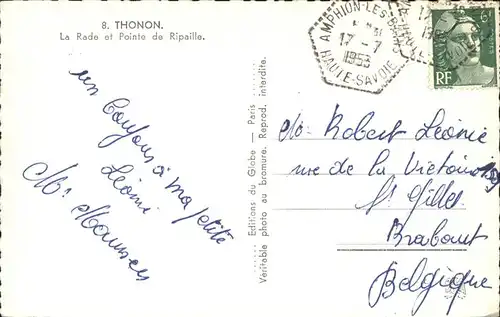 8. THONON.
La Rade et Pointe de Ripaille.
AMPHION-LES-BAINS
17 - 7
1953
HAUTE-SAVOIE
RF
un Bonjour à
ma petite
Léonie
Editions du Globe - Paris
Véritable photo au bromure. Reprod. interdite.
Robert Léonie
rue de la Victoire
St Gilles
Brabant
Belgique